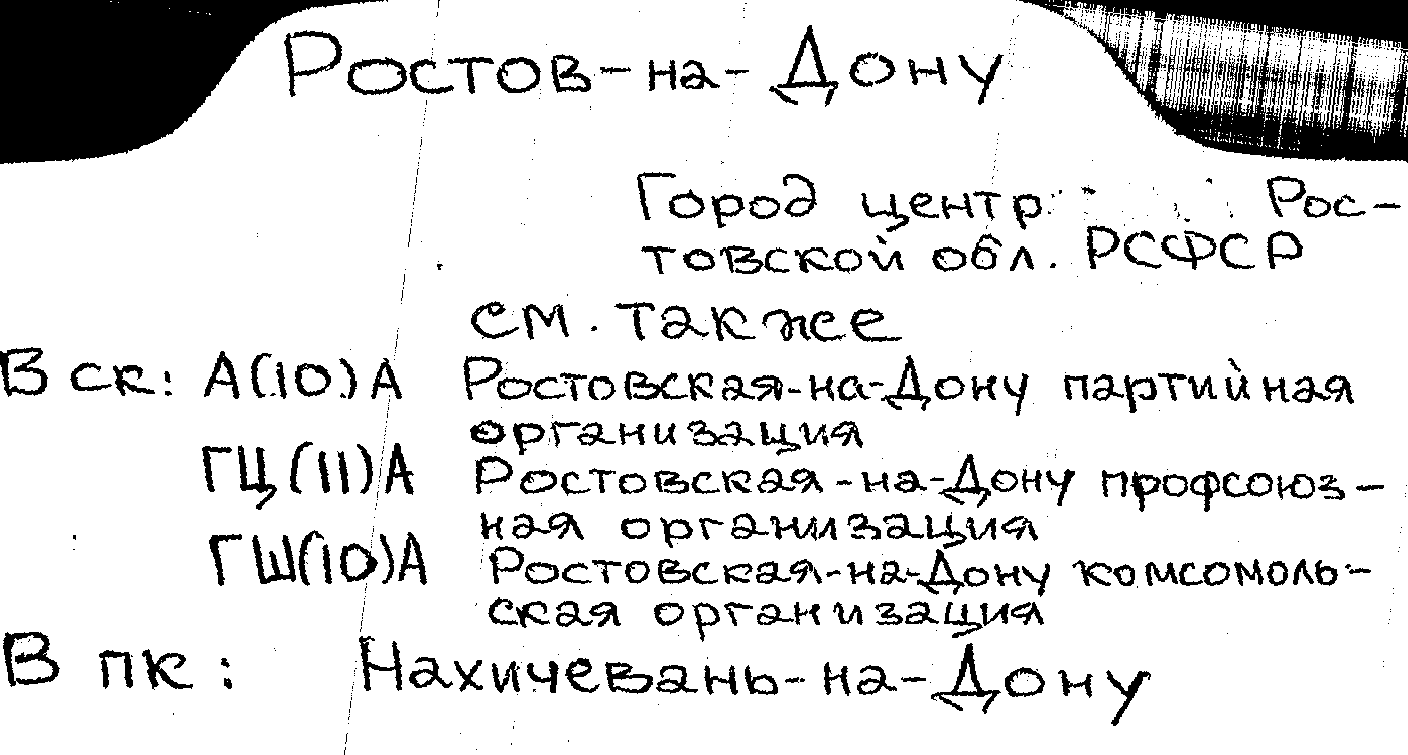 Ростов-на-Дону
Город центр Рос-
товской обл. РСФСР
см. также
В ск: А(10)А Ростовская-на-Дону партийная
организация
ГЦ(11)А Ростовская-на-Дону профсоюз-
ная организация
ГШ(10)А Ростовская-на-Дону комсомоль-
ская организация
В пк: Нахичевань-на-Дону